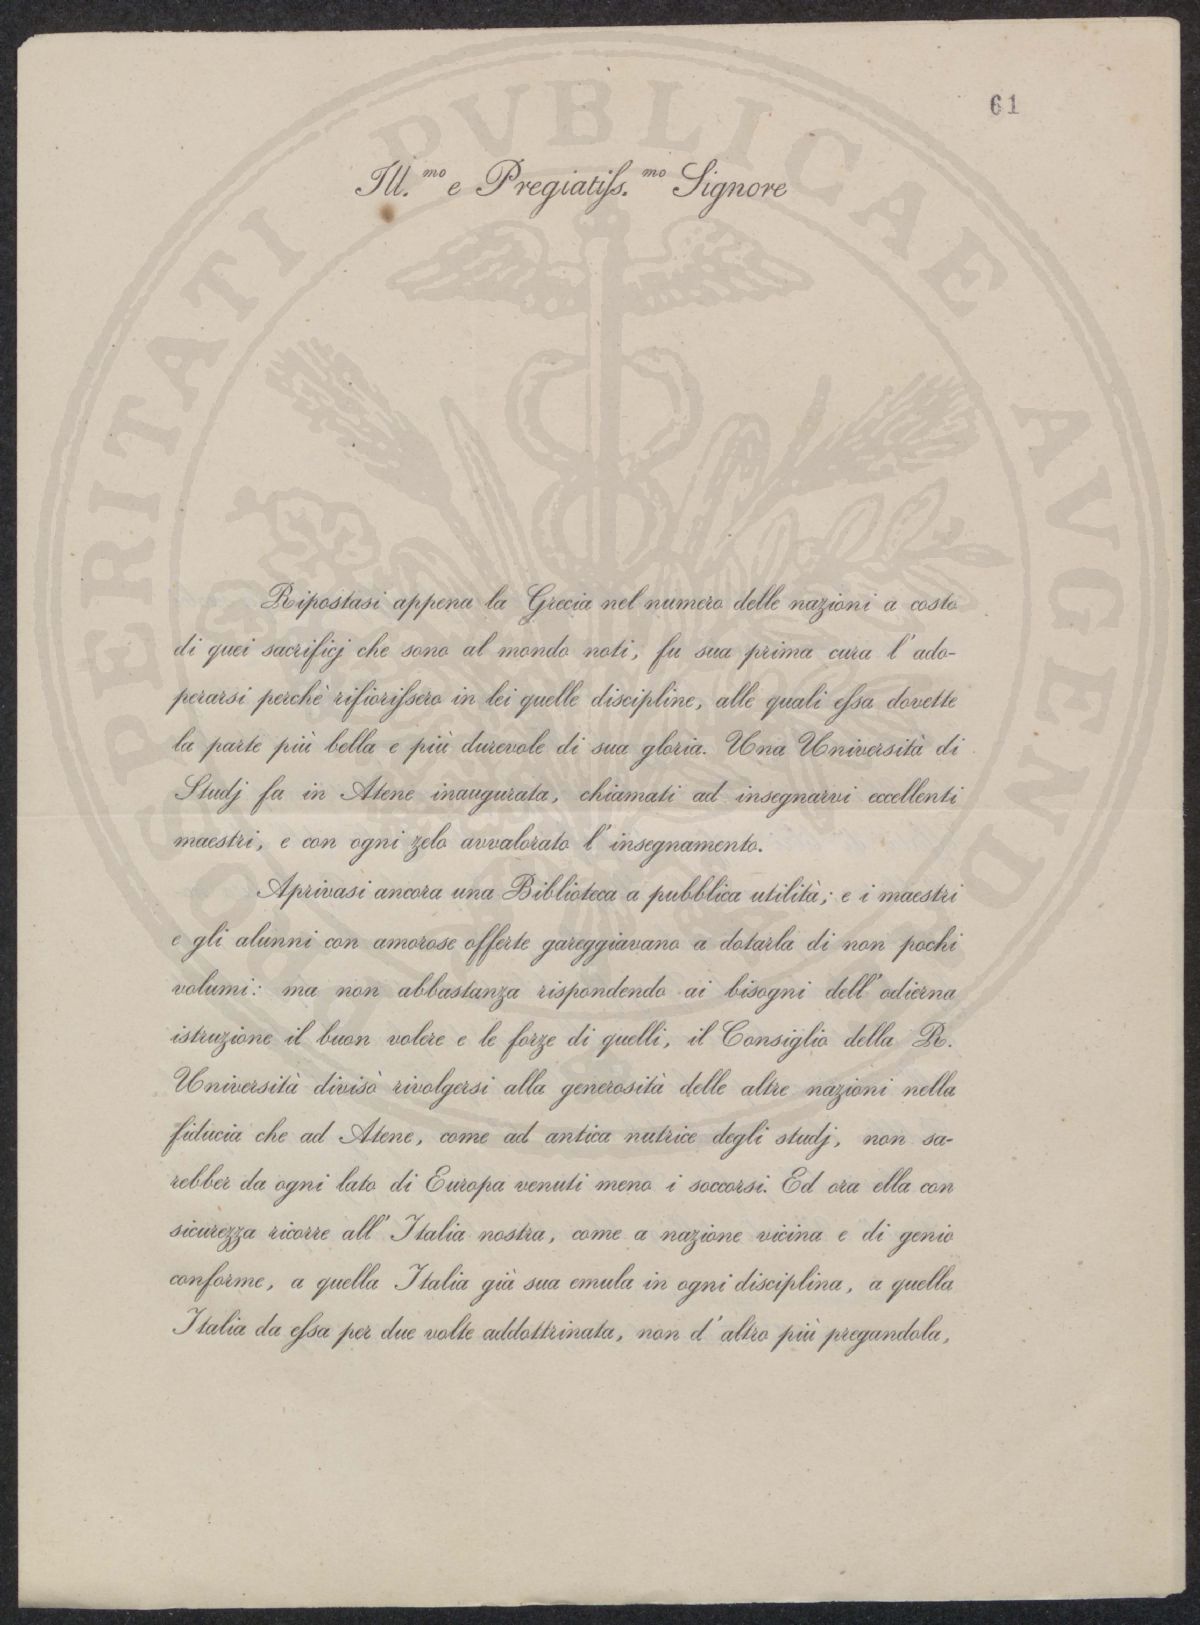 61
Ill.mo e Pregiatiſs.mo Signore
Ripostasi appena la Grecia nel numero delle nazioni a costo
di quei sacrificj che sono al mondo noti, fu sua prima cura l'ado-
perarsi perchè rifioriſsero in lei quelle discipline, alle quali eſsa dovette
la parte più bella e più durevole di sua gloria. Una Università di
Studj fu in Atene inaugurata, chiamati ad insegnarvi eccellenti
maestri, e con ogni zelo avvalorato l'insegnamento.
Aprivasi ancora una Biblioteca a pubblica utilità; e i maestri
e gli alunni con amorose offerte gareggiavano a dotarla di non pochi
volumi: ma non abbastanza rispondendo ai bisogni dell'odierna
istruzione il buon volere e le forze di quelli, il Consiglio della R.
Università divisò rivolgersi alla generosità delle altre nazioni nella
fiducia che ad Atene, come ad antica nutrice degli studj, non sa-
rebber da ogni lato di Europa venuti meno i soccorsi. Ed ora ella con
sicurezza ricorre all'Italia nostra, come a nazione vicina e di genio
conforme, a quella Italia già sua emula in ogni disciplina, a quella
Italia da eſsa per due volte addottrinata, non d'altro più pregandola,
PROSPERITATI PVBLICAE AVGENDAE